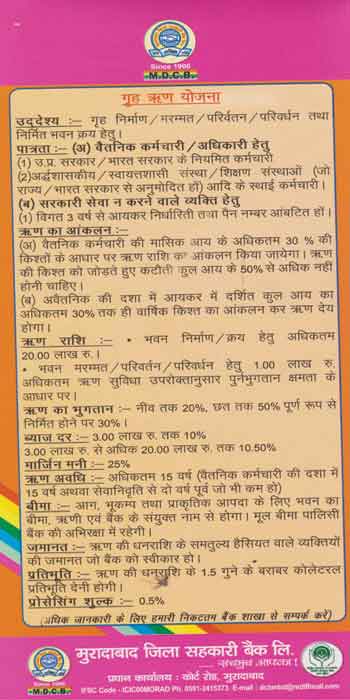 Since 1906
M.D.C.B.
गृह ऋण योजना
उद्देश्य :– गृह निर्माण/मरम्मत/परिर्वतन/परिवर्धन तथा
निर्मित भवन क्रय हेतु।
पात्रता :– (अ) वैतनिक कर्मचारी/अधिकारी हेतु
(1) उ.प्र. सरकार/भारत सरकार के नियमित कर्मचारी
(2)अर्द्धशासकीय/स्वायत्तशासी संस्था/शिक्षण संस्थाओं (जो
राज्य/भारत सरकार से अनुमोदित हों) आदि के स्थाई कर्मचारी।
(ब) सरकारी सेवा न करने वाले व्यक्ति हेतु
(1) विगत 3 वर्ष से आयकर निर्धारिती तथा पैन नम्बर आंबटित हों।
ऋण का आंकलन :–
(अ) वैतनिक कर्मचारी की मासिक आय के अधिकतम 30 % की
किश्तों के आधार पर ऋण राशि का आंकलन किया जायेगा। ऋण
की किश्त को जोडते हुए कटौती कुल आय के 50% से अधिक नहीं
होनी चाहिए।
(ब) अवैतनिक की दशा में आयकर में दर्शित कुल आय का
अधिकतम 30% तक ही वार्षिक किश्त का आंकलन कर ऋण देय
होगा।
ऋण राशि :– • भवन निर्माण/क्रय हेतु अधिकतम
20.00 लाख रु.।
• भवन मरम्मत/परिवर्तन/परिवर्धन हेतु 1.00 लाख रु.
अधिकतम ऋण सुविधा उपरोक्तानुसार पुर्नभुगतान क्षमता के
आधार पर।
ऋण का भुगतान :– नींव तक 20%, छत तक 50% पूर्ण रूप से
निर्मित होने पर 30%।
ब्याज दर :– 3.00 लाख रु. तक 10%
3.00 लाख रु. से अधिक 20.00 लाख रु. तक 10.50%
मार्जिन मनी :– 25%
ऋण अवधि :– अधिकतम 15 वर्ष (वैतनिक कर्मचारी की दशा में
15 वर्ष अथवा सेवानिवृति से दो वर्ष पूर्व जो भी कम हो)
बीमा :– आग, भूकम्प तथा प्राकृतिक आपदा के लिए भवन का
बीमा, ऋणी एवं बैंक के संयुक्त नाम से होगा। मूल बीमा पालिसी
बैंक की अभिरक्षा में रहेगी।
जमानत :– ऋण की धनराशि के समतुल्य हैसियत वाले व्यक्तियों
की जमानत जो बैंक को स्वीकार हो।
प्रतिभूति :– ऋण की धनराशि के 1.5 गुने के बराबर कोलेटरल
प्रतिभूति देनी होगी।
प्रोसेसिंग शुल्क :– 0.5%
(अधिक जानकारी के लिए हमारी निकटतम बैंक शाखा से सम्पर्क करें)
मुरादाबाद जिला सहकारी बैंक लि.
सचमुच आपका!
प्रधान कार्यालय : कोर्ट रोड, मुरादाबाद
Since 1906
M.D.C.B.
IFSC Code - ICIC00MORAD Ph. 0591-2415373